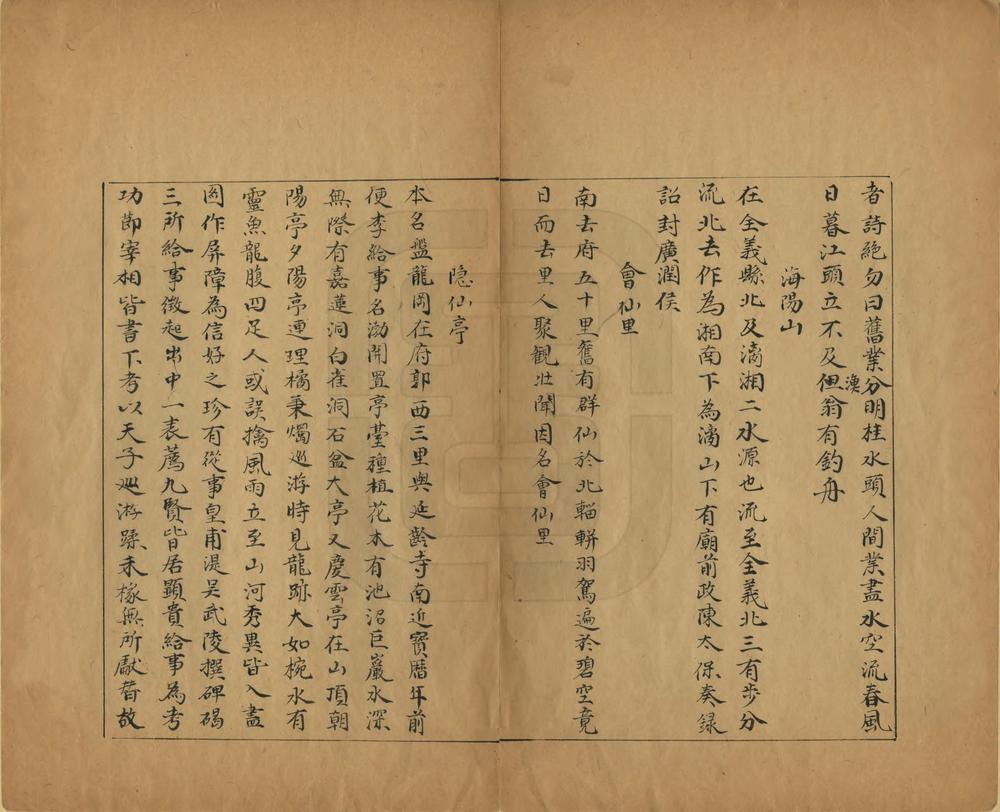 者詩絕句曰舊業分明桂水頭人間業盡水空流春風
日暮江頭立不及但漁翁有釣舟
海陽山
在全義縣北及漓湘二水源也流至全義北三有步分
流北去作為湘南下為漓山下有廟前政陳太保奏録
詔封廣潤侯
會仙里
南去府五十里舊有群仙於北輜軿羽駕遍於碧空竟
日而去里人聚觀壯聞因名會仙里
隱仙亭
本名盤龍岡在府郭西三里與延齡寺南近寶曆年前
便李給事名渤開置亭臺種植花木有池沼巨巖水深
無際有嘉蓮洞白雀洞石盆大亭又慶雲亭在山頂朝
陽亭夕陽亭連理橘秉燭巡游時見龍跡大如椀水有
靈魚龍腹四足人或誤擒風雨立至山河秀異皆入畫
圖作屏障為信好之珍有從事皇甫湜吴武陵撰碑碣
三所給事徵起出中一表薦九賢皆居顯貴給事為考
功郎宰相皆書下考以天子巡游蹂禾稼無所獻替故